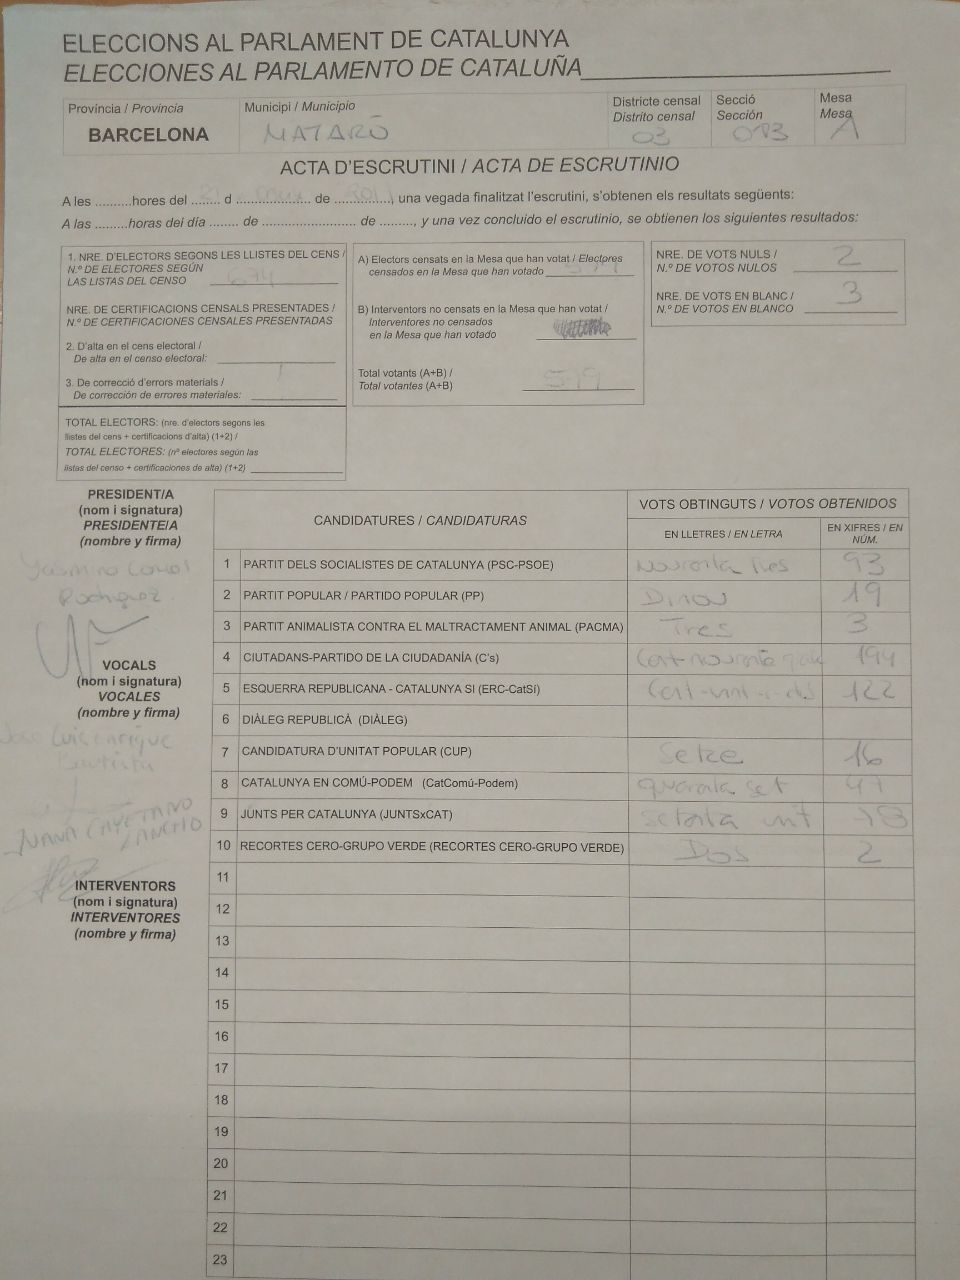 ELECCIONS AL PARLAMENT DE CATALUNYA
ELECCIONES AL PARLAMENTO DE CATALUÑA
Província / Provincia
BARCELONA
Municipi / Municipio
MATARÓ
Districte censal
Distrito censal
03
Secció
Sección
013
Mesa
Mesa
A
ACTA D'ESCRUTINI / ACTA DE ESCRUTINIO
A les .........hores del ........ d .................. de .............., una vegada finalitzat l'escrutini, s'obtenen els resultats següents:
A las .........horas del día ....... de ......................... de ........, y una vez concluido el escrutinio, se obtienen los siguientes resultados:
1. NRE. D'ELECTORS SEGONS LES LLISTES DEL CENS /
N.º DE ELECTORES SEGÚN
LAS LISTAS DEL CENSO 674
NRE. DE CERTIFICACIONS CENSALS PRESENTADES /
N.º DE CERTIFICACIONES CENSALES PRESENTADAS
2. D'alta en el cens electoral /
De alta en el censo electoral:
3. De correcció d'errors materials /
De corrección de errores materiales:
TOTAL ELECTORS: (nre. d'electors segons les
llistes del cens + certificacions d'alta) (1+2) /
TOTAL ELECTORES: (nº electores según las
listas del censo + certificaciones de alta) (1+2)
A) Electors censats en la Mesa que han votat / Electores
censados en la Mesa que han votado 579
B) Interventors no censats en la Mesa que han votat /
Interventores no censados
en la Mesa que han votado
Total votants (A+B) /
Total votantes (A+B) 579
NRE. DE VOTS NULS /
N.º DE VOTOS NULOS 2
NRE. DE VOTS EN BLANC /
N.º DE VOTOS EN BLANCO 3
PRESIDENT/A
(nom i signatura)
PRESIDENTE/A
(nombre y firma)
Rodriguez
VOCALS
(nom i signatura)
VOCALES
(nombre y firma)
Bautista
CAYETANO
SANCHO
INTERVENTORS
(nom i signatura)
INTERVENTORES
(nombre y firma)
CANDIDATURES / CANDIDATURAS
VOTS OBTINGUTS / VOTOS OBTENIDOS
EN LLETRES / EN LETRA
EN XIFRES / EN NÚM.
1 PARTIT DELS SOCIALISTES DE CATALUNYA (PSC-PSOE) Noranta tres 93
2 PARTIT POPULAR / PARTIDO POPULAR (PP) Dinou 19
3 PARTIT ANIMALISTA CONTRA EL MALTRACTAMENT ANIMAL (PACMA) Tres 3
4 CIUTADANS-PARTIDO DE LA CIUDADANÍA (C's) 194
5 ESQUERRA REPUBLICANA - CATALUNYA SI (ERC-CatSí) Cent-vint-i-dos 122
6 DIÀLEG REPUBLICÀ (DIÀLEG)
7 CANDIDATURA D'UNITAT POPULAR (CUP) Setze 16
8 CATALUNYA EN COMÚ-PODEM (CatComú-Podem) quaranta set 47
9 JUNTS PER CATALUNYA (JUNTSxCAT) setanta vuit 78
10 RECORTES CERO-GRUPO VERDE (RECORTES CERO-GRUPO VERDE) Dos 2
11
12
13
14
15
16
17
18
19
20
21
22
23